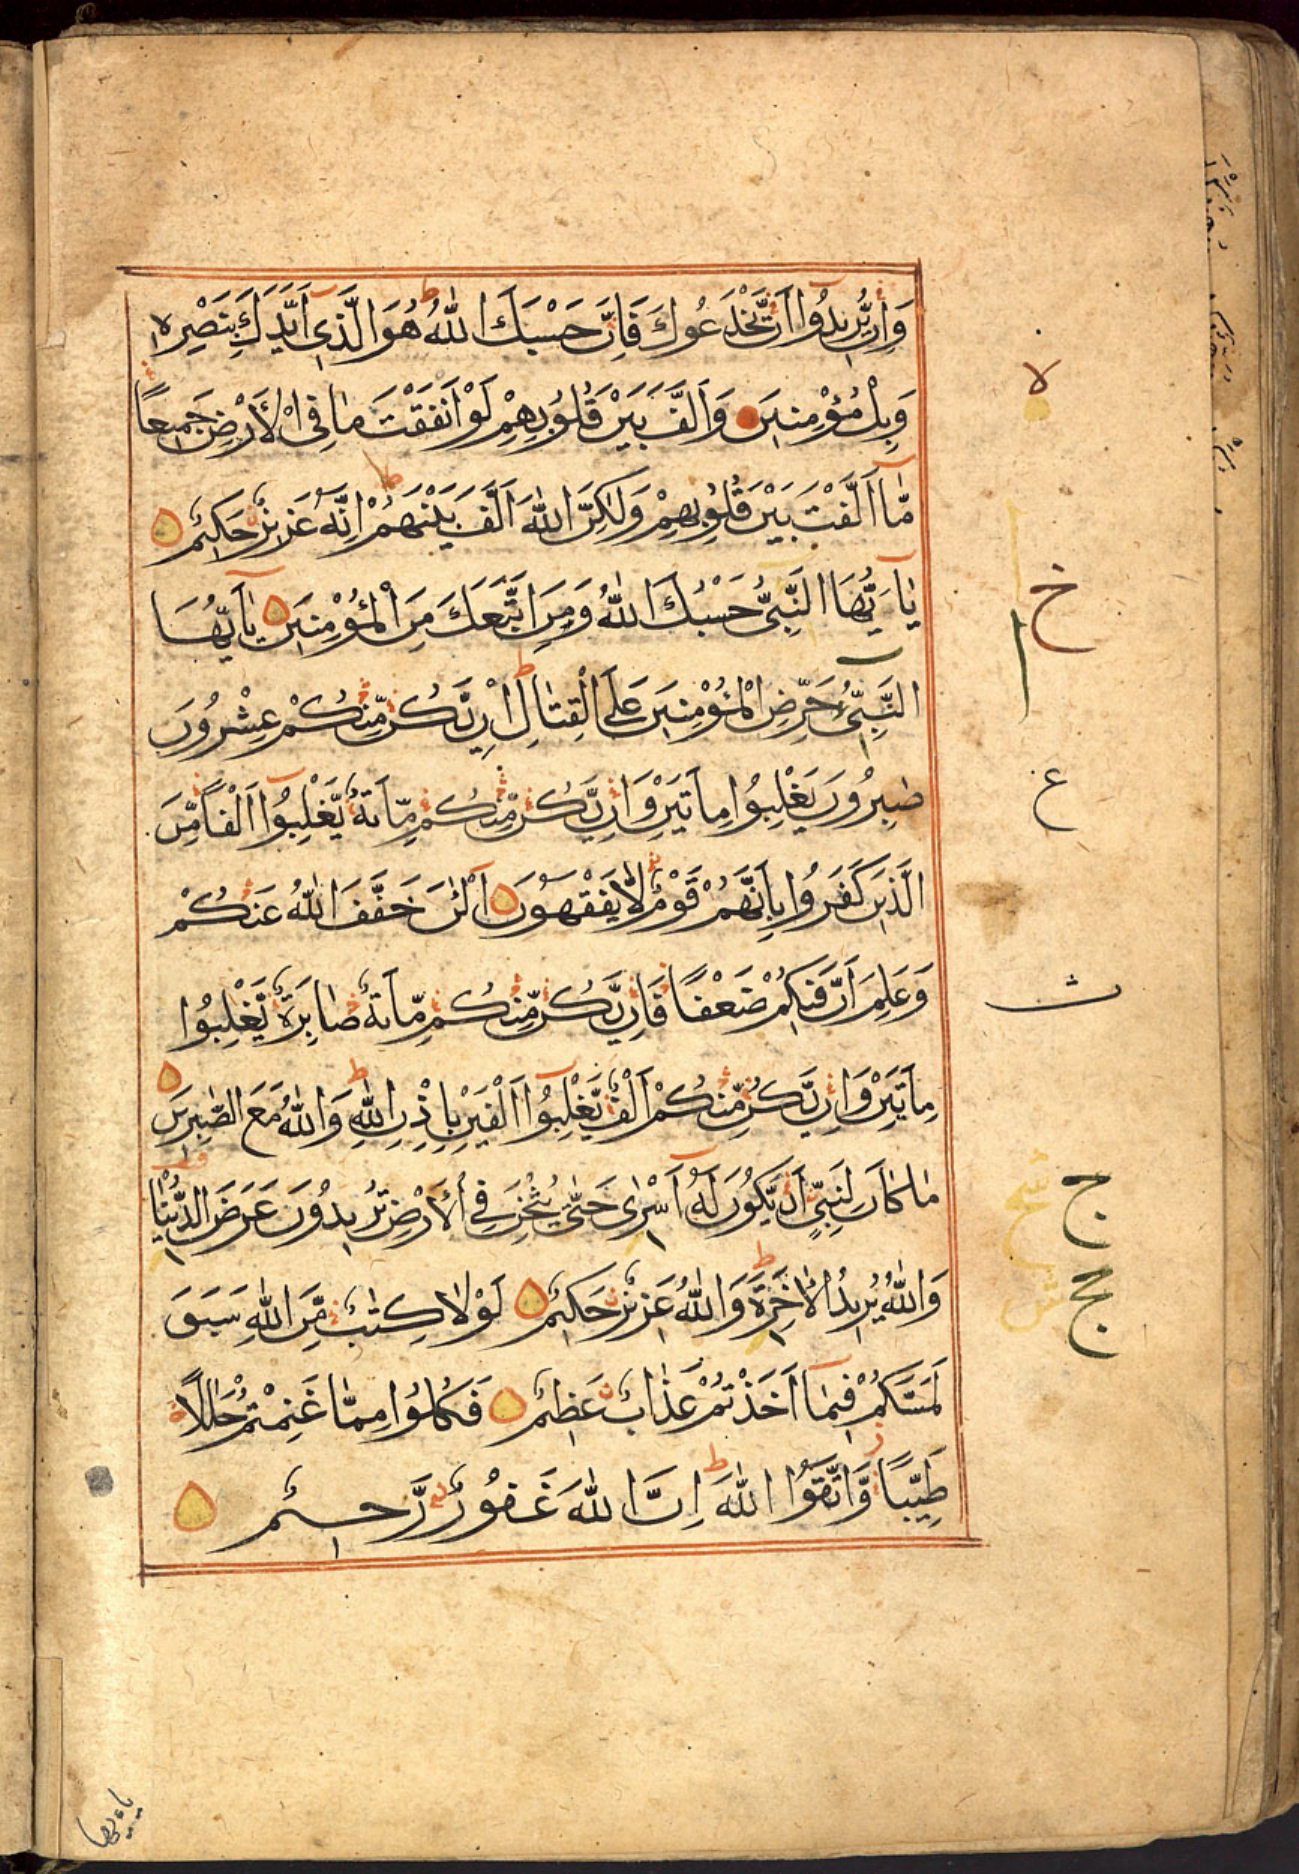 وَاِنْ يُّرِيْدُوْۤا اَنْ يَّخْدَعُوْكَ فَاِنَّ حَسْبَكَ اللّٰهُ ط هُوَ الَّذِىْۤ اَيَّدَكَ بِنَصْرِهٖ
وَبِالْمُؤْمِنِيْنَ وَاَلَّفَ بَيْنَ قُلُوْبِهِمْ لَوْ اَنْفَقْتَ مَا فِى الْاَرْضِ جَمِيْعًا
مَّاۤ اَلَّفْتَ بَيْنَ قُلُوْبِهِمْ وَلٰكِنَّ اللّٰهَ اَلَّفَ بَيْنَهُمْ ط اِنَّهٗ عَزِيْزٌ حَكِيْمٌ
يٰۤاَيُّهَا النَّبِىُّ حَسْبُكَ اللّٰهُ وَمَنِ اتَّبَعَكَ مِنَ الْمُؤْمِنِيْنَ يٰۤاَيُّهَا
النَّبِىُّ حَرِّضِ الْمُؤْمِنِيْنَ عَلَى الْقِتَالِ ط اِنْ يَّكُنْ مِّنْكُمْ عِشْرُوْنَ
صٰبِرُوْنَ يَغْلِبُوْا مِائَتَيْنِ وَاِنْ يَّكُنْ مِّنْكُمْ مِّائَةٌ يَّغْلِبُوْۤا اَلْفًا مِّنَ
الَّذِيْنَ كَفَرُوْا بِاَنَّهُمْ قَوْمٌ لَّا يَفْقَهُوْنَ اَلْئٰنَ خَفَّفَ اللّٰهُ عَنْكُمْ
وَعَلِمَ اَنَّ فِيْكُمْ ضَعْفًا فَاِنْ يَّكُنْ مِّنْكُمْ مِّائَةٌ صَابِرَةٌ يَّغْلِبُوْا
مِائَتَيْنِ وَاِنْ يَّكُنْ مِّنْكُمْ اَلْفٌ يَّغْلِبُوْۤا اَلْفَيْنِ بِاِذْنِ اللّٰهِ ط وَاللّٰهُ مَعَ الصّٰبِرِيْنَ
مَا كَانَ لِنَبِىٍّ اَنْ يَّكُوْنَ لَهٗۤ اَسْرٰى حَتّٰى يُثْخِنَ فِى الْاَرْضِ تُرِيْدُوْنَ عَرَضَ الدُّنْيَا
وَاللّٰهُ يُرِيْدُ الْاٰخِرَةَ ط وَاللّٰهُ عَزِيْزٌ حَكِيْمٌ لَوْلَا كِتٰبٌ مِّنَ اللّٰهِ سَبَقَ
لَمَسَّكُمْ فِيْمَاۤ اَخَذْتُمْ عَذَابٌ عَظِيْمٌ فَكُلُوْا مِمَّا غَنِمْتُمْ حَلٰلًا
طَيِّبًا وَّاتَّقُوا اللّٰهَ ط اِنَّ اللّٰهَ غَفُوْرٌ رَّحِيْمٌ
لا
خ
ع
ث
ج
ج
يا ايها